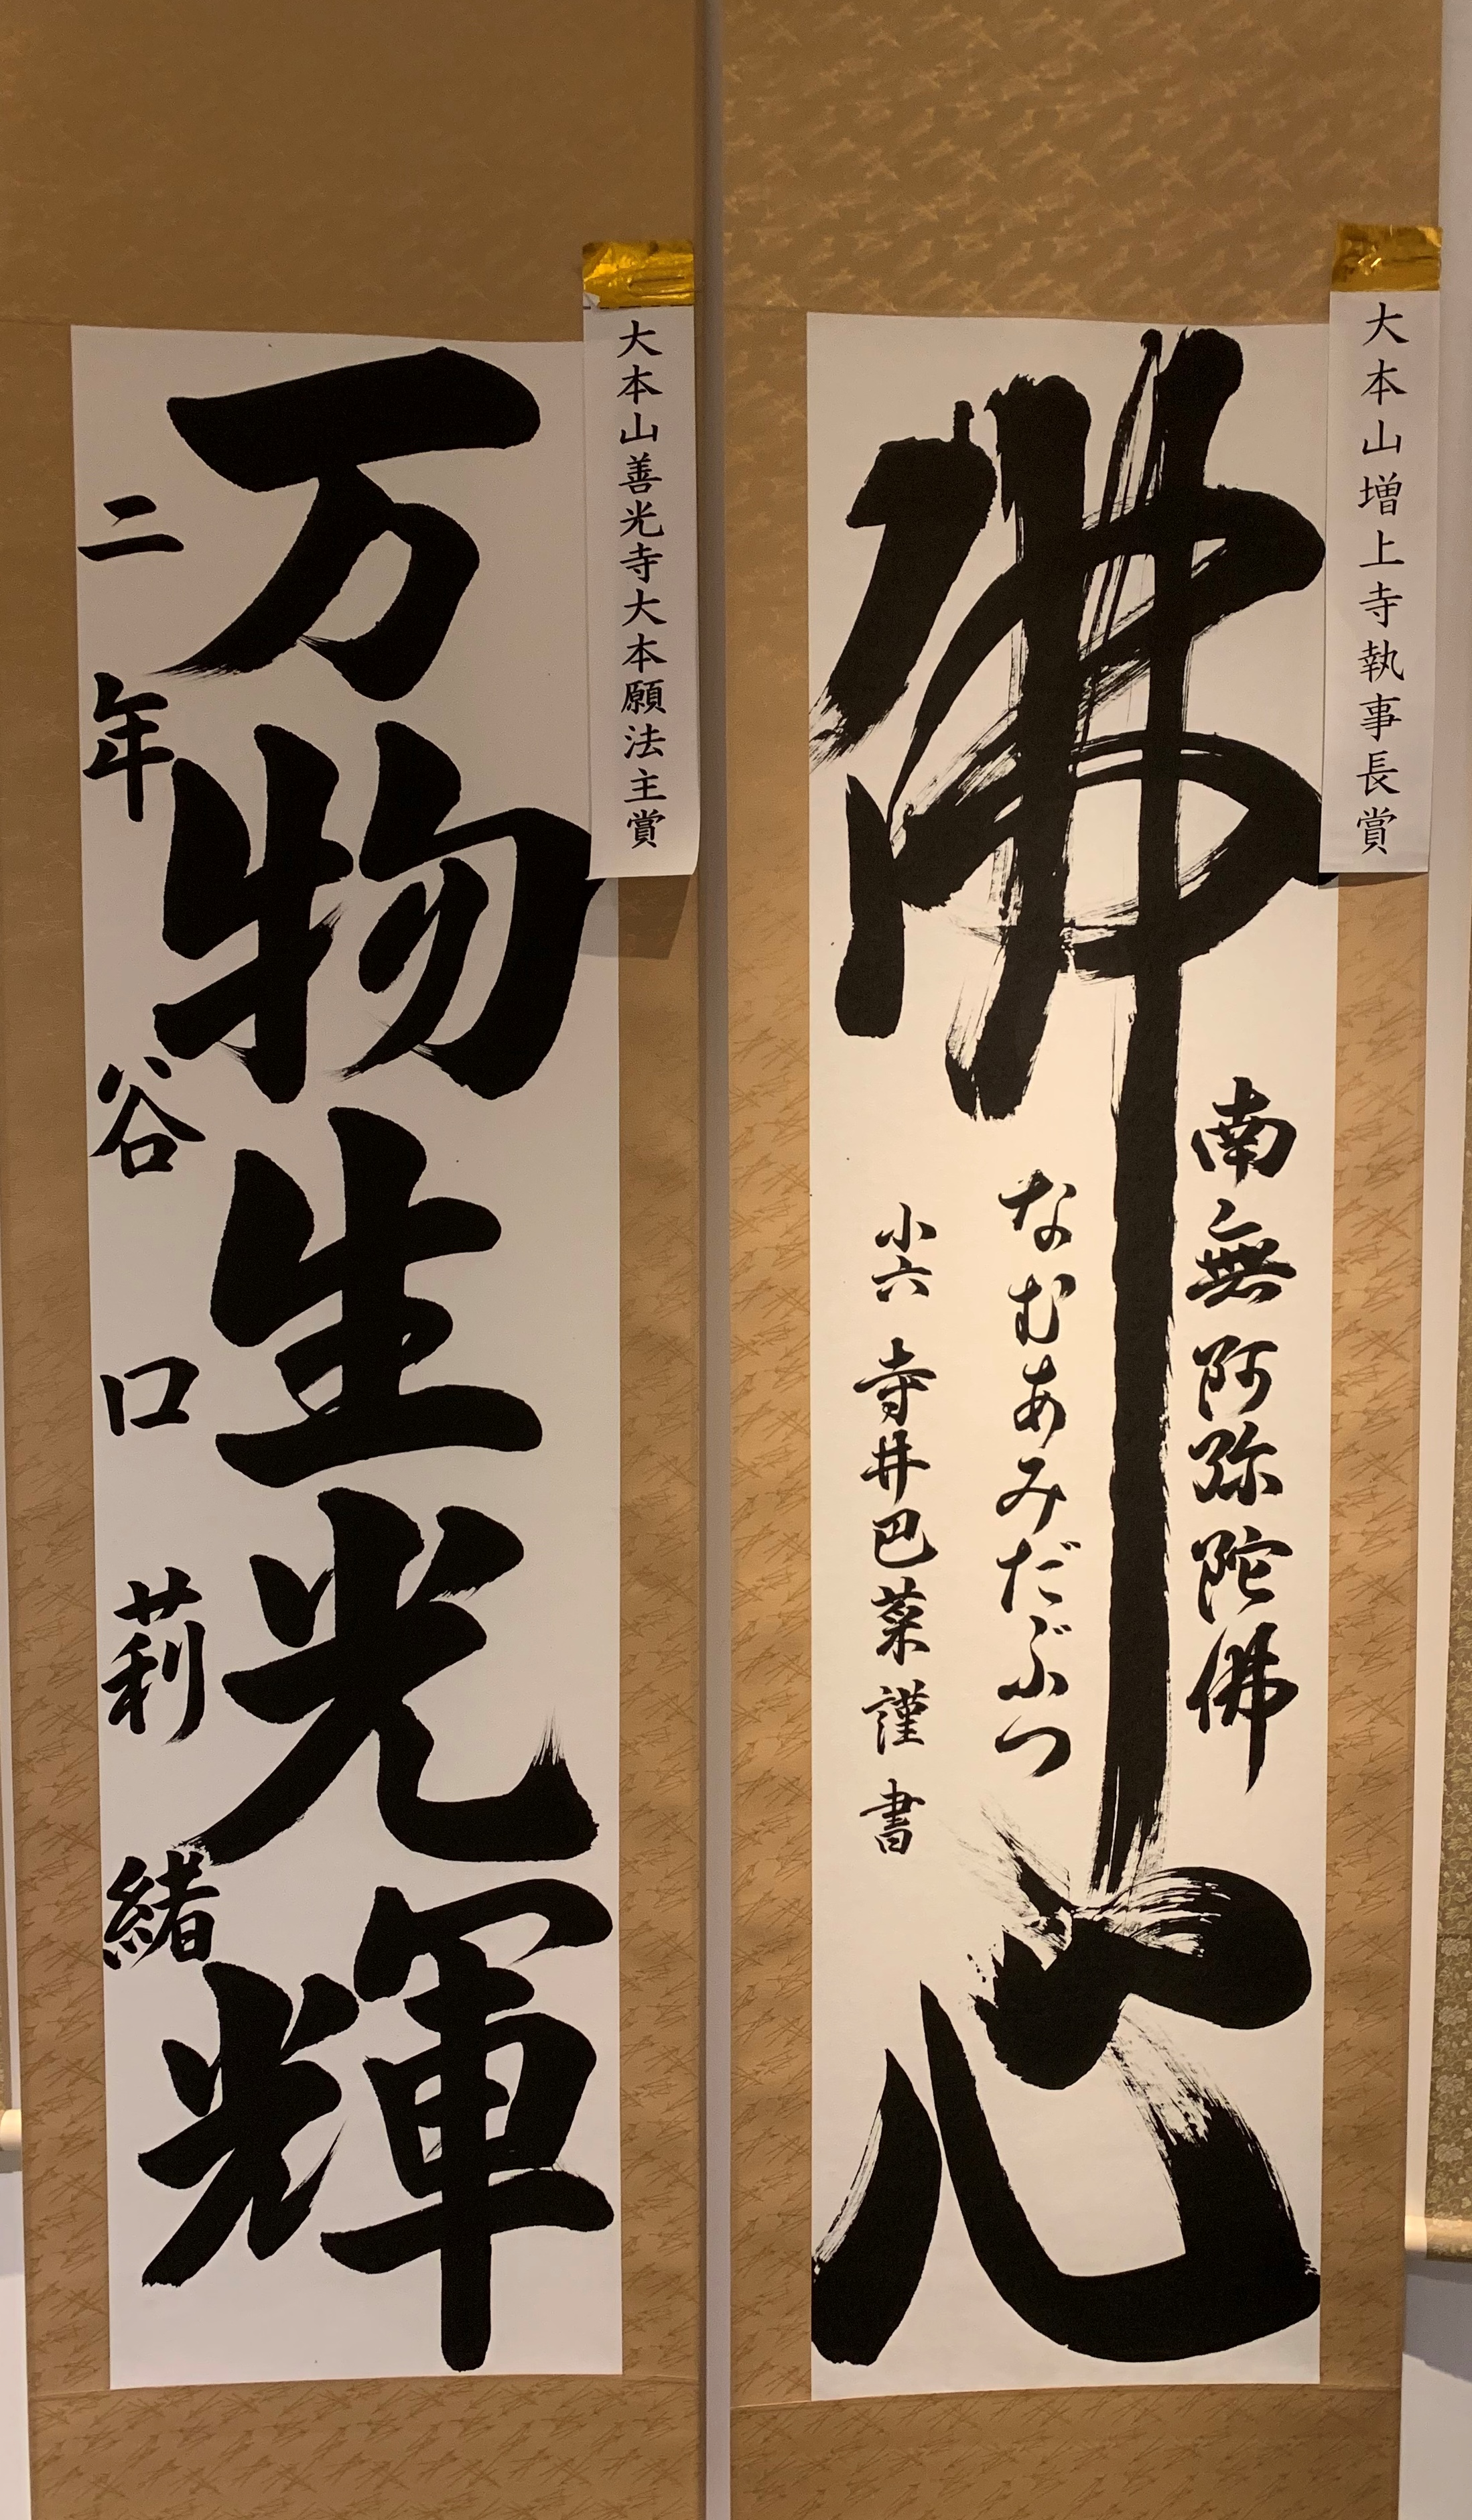 大本山増上寺執事長賞
佛心
南無阿弥陀佛
なむあみだぶつ
小六 寺井巴菜謹書
大本山善光寺大本願法主賞
万物生光輝
二年 谷口莉緒